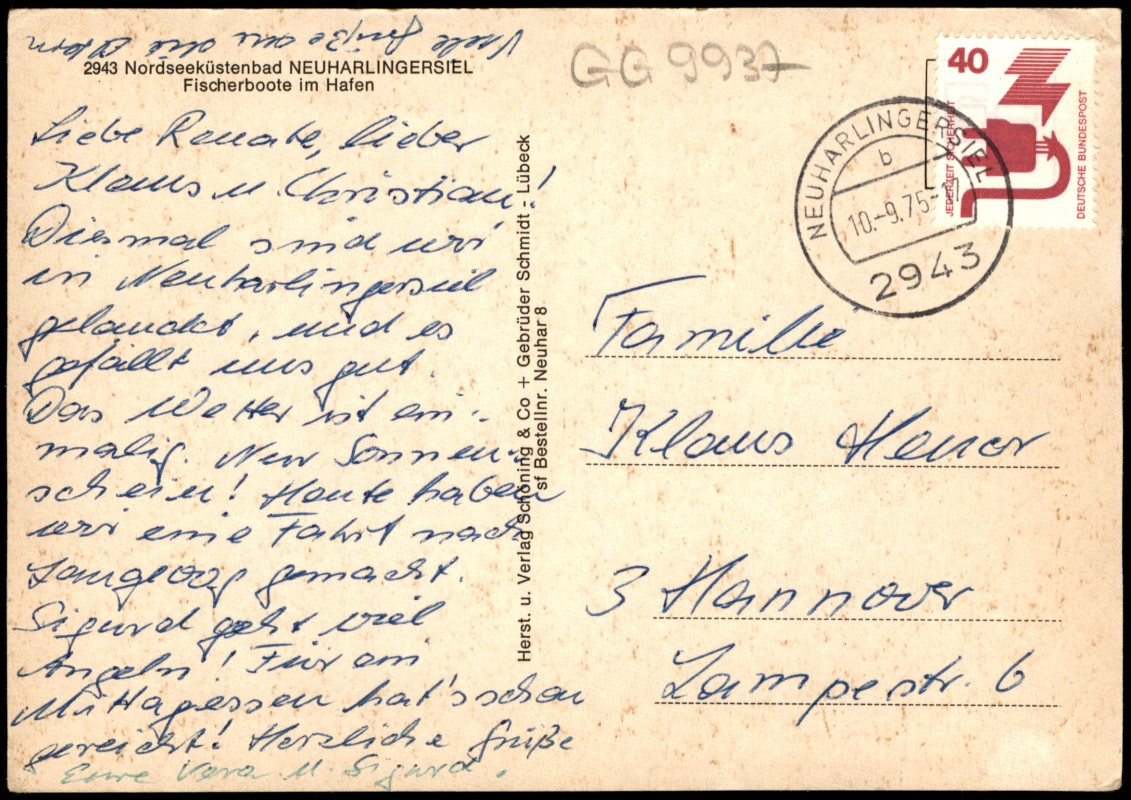 Viele Grüße an die
2943 Nordseeküstenbad NEUHARLINGERSIEL
Fischerboote im Hafen
Liebe Renate, lieber
Klaus u. Christian!
Diesmal sind wir
in Neuharlingersiel
gelandet, und es
gefällt uns gut.
Das Wetter ist ein-
malig. Nur Sonnen-
schein! Heute haben
wir eine Fahrt nach
Langeoog gemacht.
Sigurd geht viel
Angeln! Für ein
Mittagessen hat's schon
gereicht! Herzliche Grüße
Eure Vera u. Sigurd.
Herst. u. Verlag Schöning & Co + Gebrüder Schmidt - Lübeck
sf Bestellnr. Neuhar 8
GG 9937
40
JEDERZEIT SICHERHEIT
DEUTSCHE BUNDESPOST
NEUHARLINGERSIEL
b
10.-9.75-
2943
Familie
Klaus
3 Hannover
Lampestr. 6